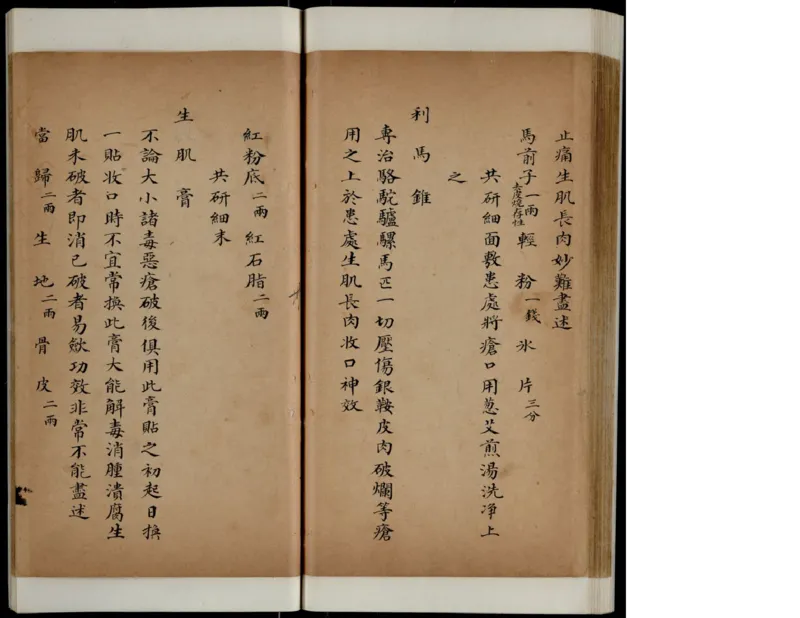 止痛生肌長肉妙難盡述
馬前子一兩去皮燒存性輕粉一錢氷片三分
共研細面敷患處將瘡口用蔥艾煎湯洗淨上
之
利馬錐
專治駱駝驢騾馬匹一切壓傷銀鞍皮肉破爛等瘡
用之上於患處生肌長肉收口神效
紅粉底二兩紅石脂二兩
共研細末
生肌膏
不論大小諸毒惡瘡破後俱用此膏貼之初起日換
一貼收口時不宜常換此膏大能解毒消腫潰腐生
肌未破者即消已破者易歛功效非常不能盡述
當歸二兩生地二兩骨皮二兩